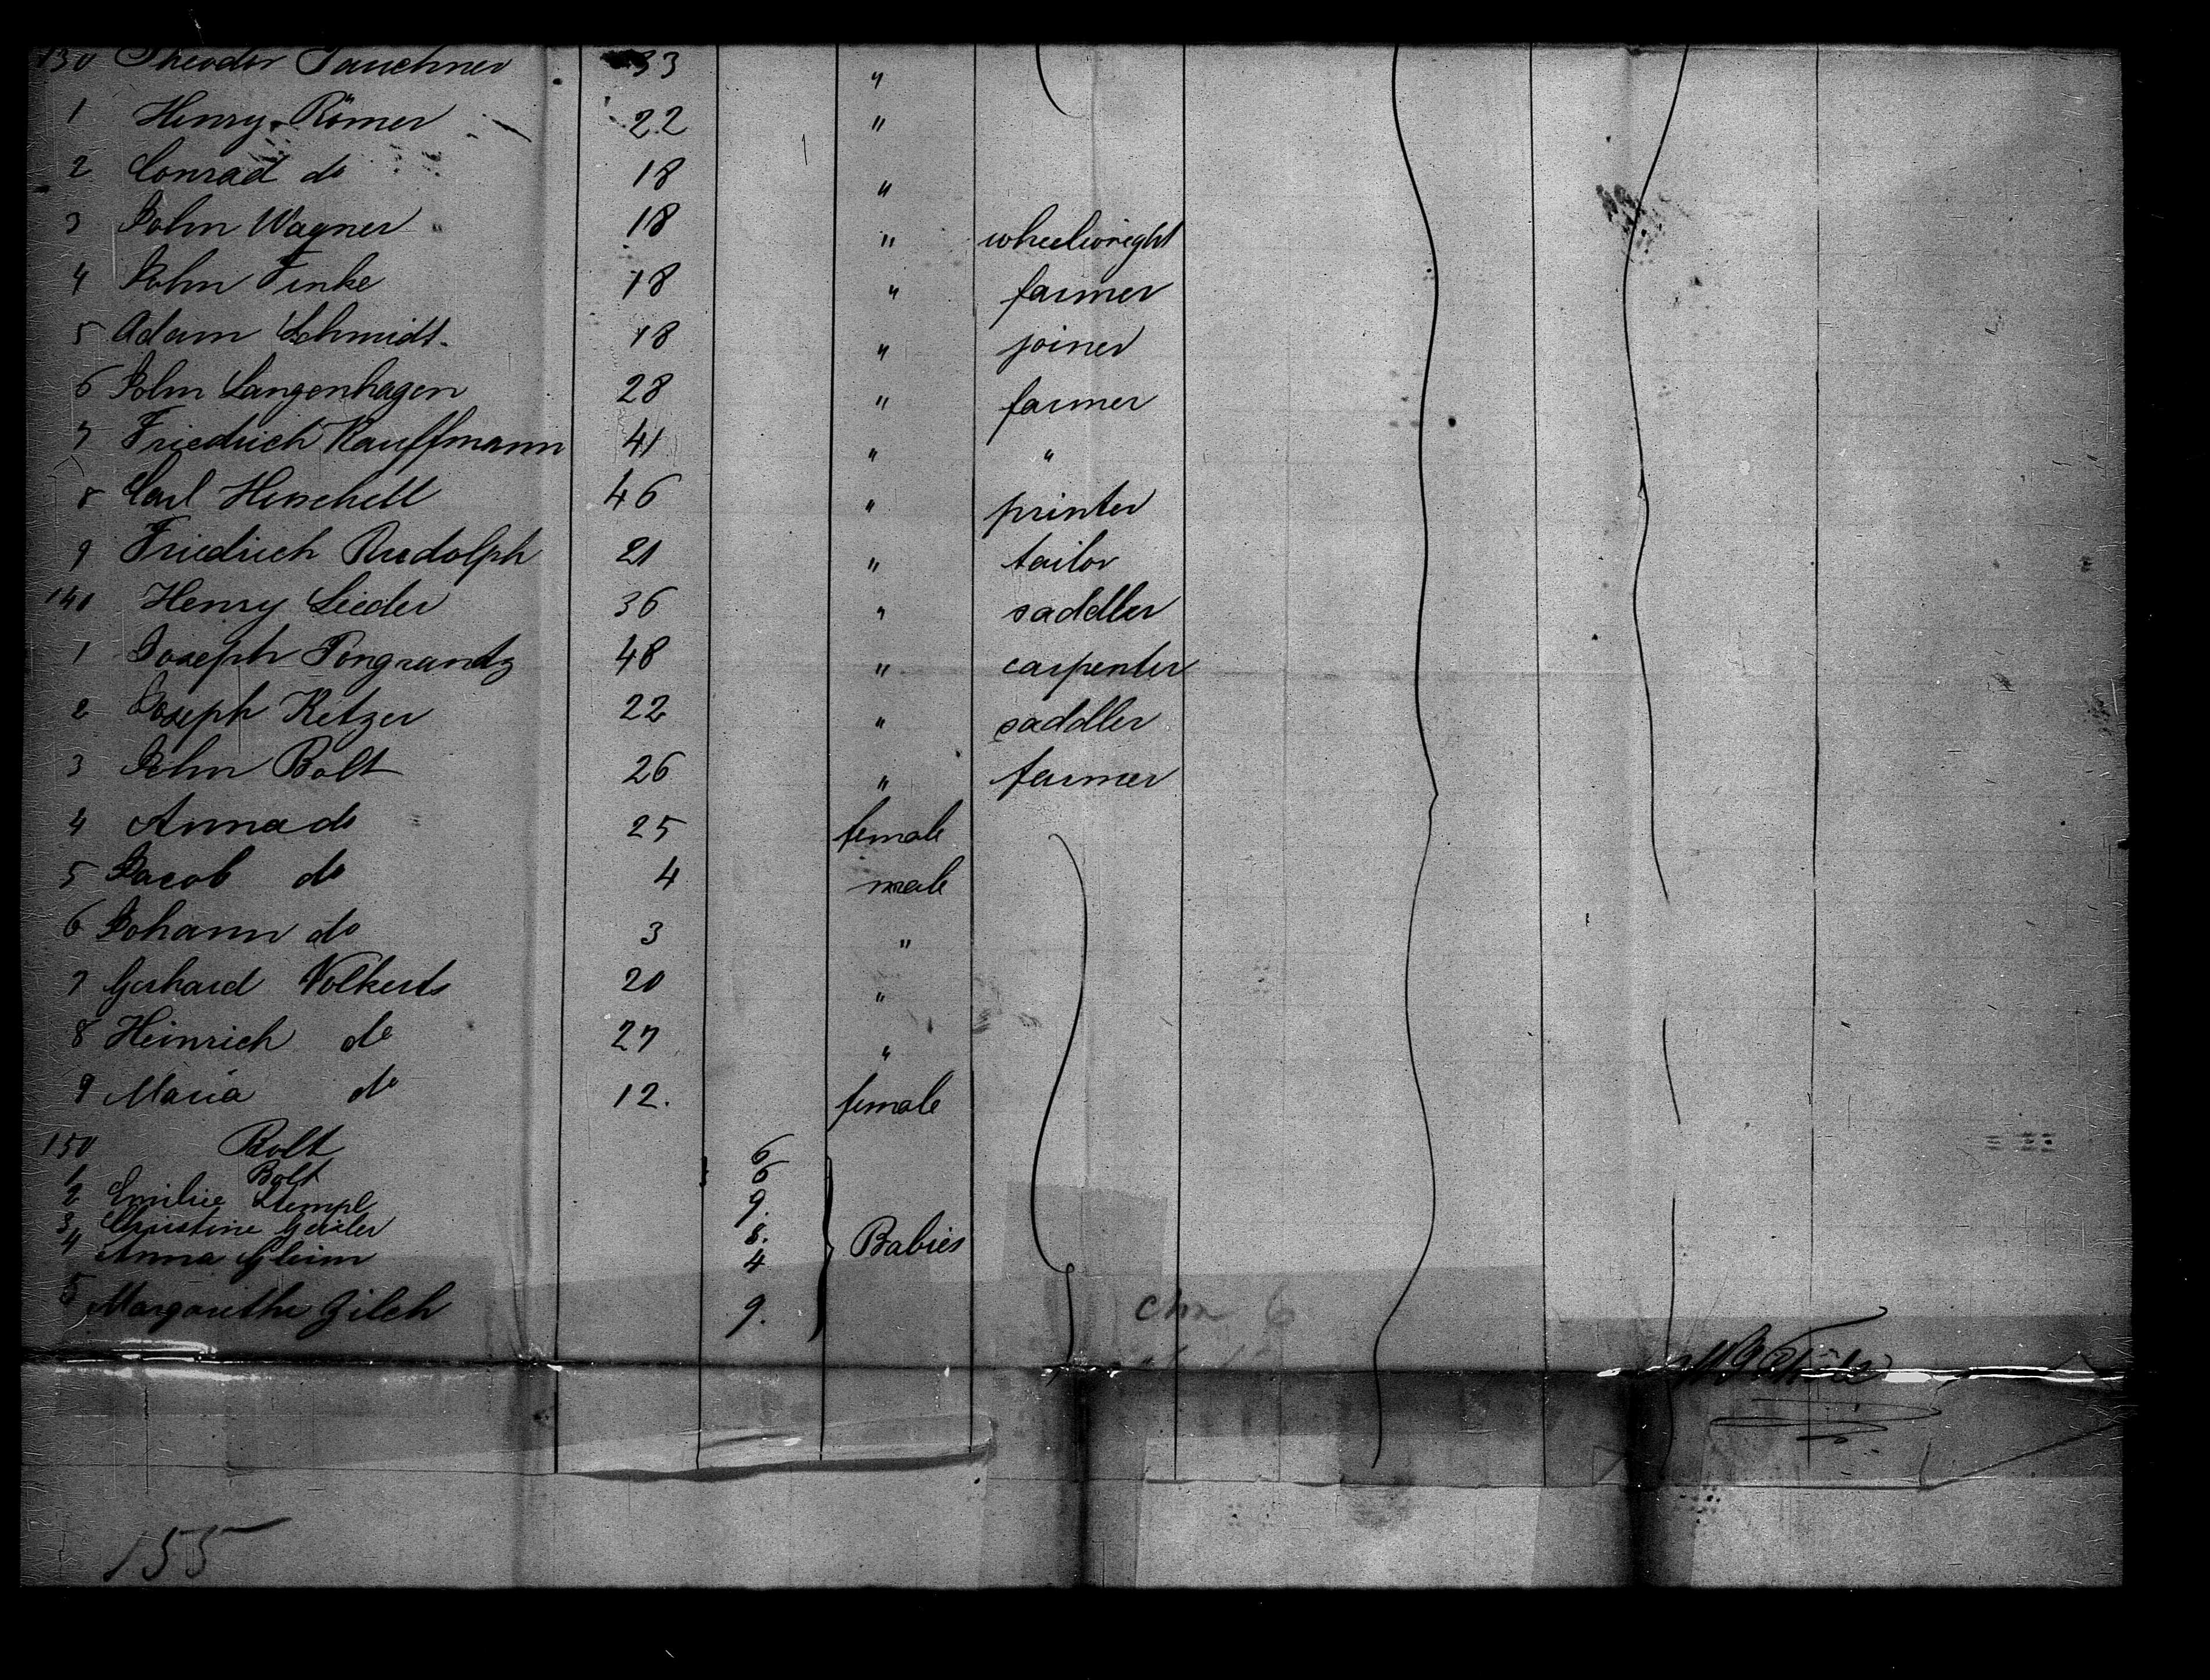 130 Theodor Tauchner 33 "
1 Henry Römer 22 "
2 Conrad do 18 "
3 John Wagner 18 " wheelwright
4 John Finke 18 " farmer
5 Adam Schmidt. 18 " joiner
6 John Langenhagen 28 " farmer
7 Friedrich Kauffmann 41 " "
8 Carl Henchell 46 " printer
9 Friedrich Rudolph 21 " tailor
140 Henry Lieder 36 " saddler
1 Joseph Pongrantz 48 " carpenter
2 Joseph Ketzer 22 " saddler
3 John Bolt 26 " farmer
4 Anna do 25 female
5 Jacob do 4 male
6 Johann do 3 "
7 Gerhard Volkerts 20 "
8 Heinrich do 27 "
9 Maria do 12. female
150 Bolt 6
1 Bolt 6
2 Emilie Stempl 9.
3 Christine 8. Babies
4 Anna Gleim 4
5 Margarethe Zilch 9.
155